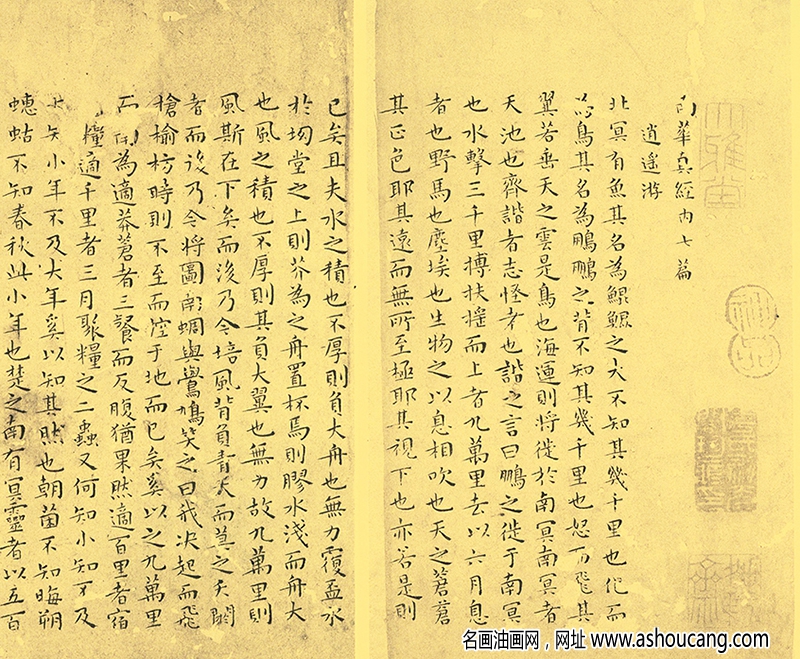 南華真經内七篇
逍遥游
北冥有魚其名為鯤鯤之大不知其幾千里也化而
為鳥其名為鵬鵬之背不知其幾千里也怒而飛其
翼若垂天之雲是鳥也海運則將徙於南冥南冥者
天池也齊諧者志怪者也諧之言曰鵬之徙于南冥
也水擊三千里摶扶摇而上者九萬里去以六月息
者也野馬也塵埃也生物之以息相吹也天之蒼蒼
其正色耶其遠而無所至極耶其視下也亦若是則
已矣且夫水之積也不厚則負大舟也無力覆盃水
於坳堂之上則芥為之舟置杯焉則膠水淺而舟大
也風之積也不厚則其負大翼也無力故九萬里則
風斯在下矣而後乃今培風背負青天而莫之夭閼
者而後乃今將圖南蜩與鷽鳩笑之曰我决起而飛
槍榆枋時則不至而控于地而已矣奚以之九萬里
而南為適莽蒼者三餐而反腹猶果然適百里者宿
糧適千里者三月聚糧之二蟲又何知小知不及
大知小年不及大年奚以知其然也朝菌不知晦朔
蟪蛄不知春秋此小年也楚之南有冥靈者以五百
神品
名画油画网，网址 www.ashoucang.com